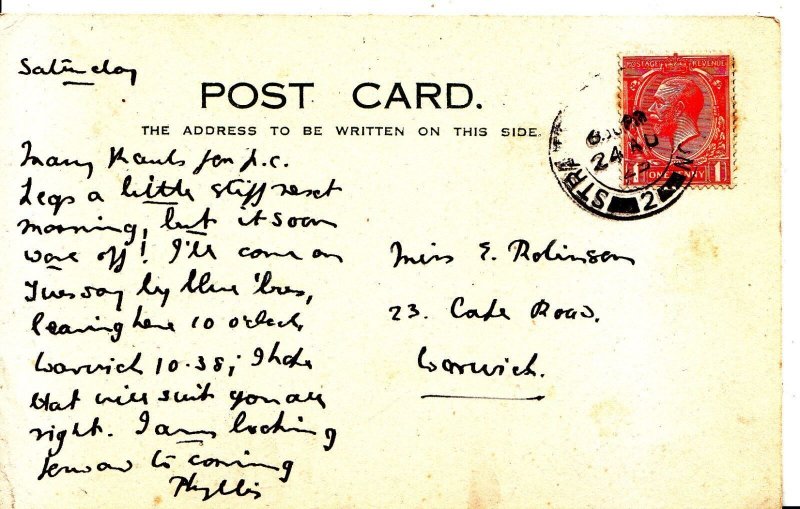 Saturday
POST CARD.
THE ADDRESS TO BE WRITTEN ON THIS SIDE.
Many thanks for p.c.
Legs a little stiff next
morning, but it soon
wore off! I'll come on
Tuesday by blue 'bus,
leaving here 10 o'clock
Warwick 10.38; I hope
that will suit you all
right. I am looking
forward to coming
Phyllis
Miss E. Robinson
23. Cape Road.
Warwick.
POSTAGE REVENUE
1 ONE PENNY 1
STRA
24 AU
2